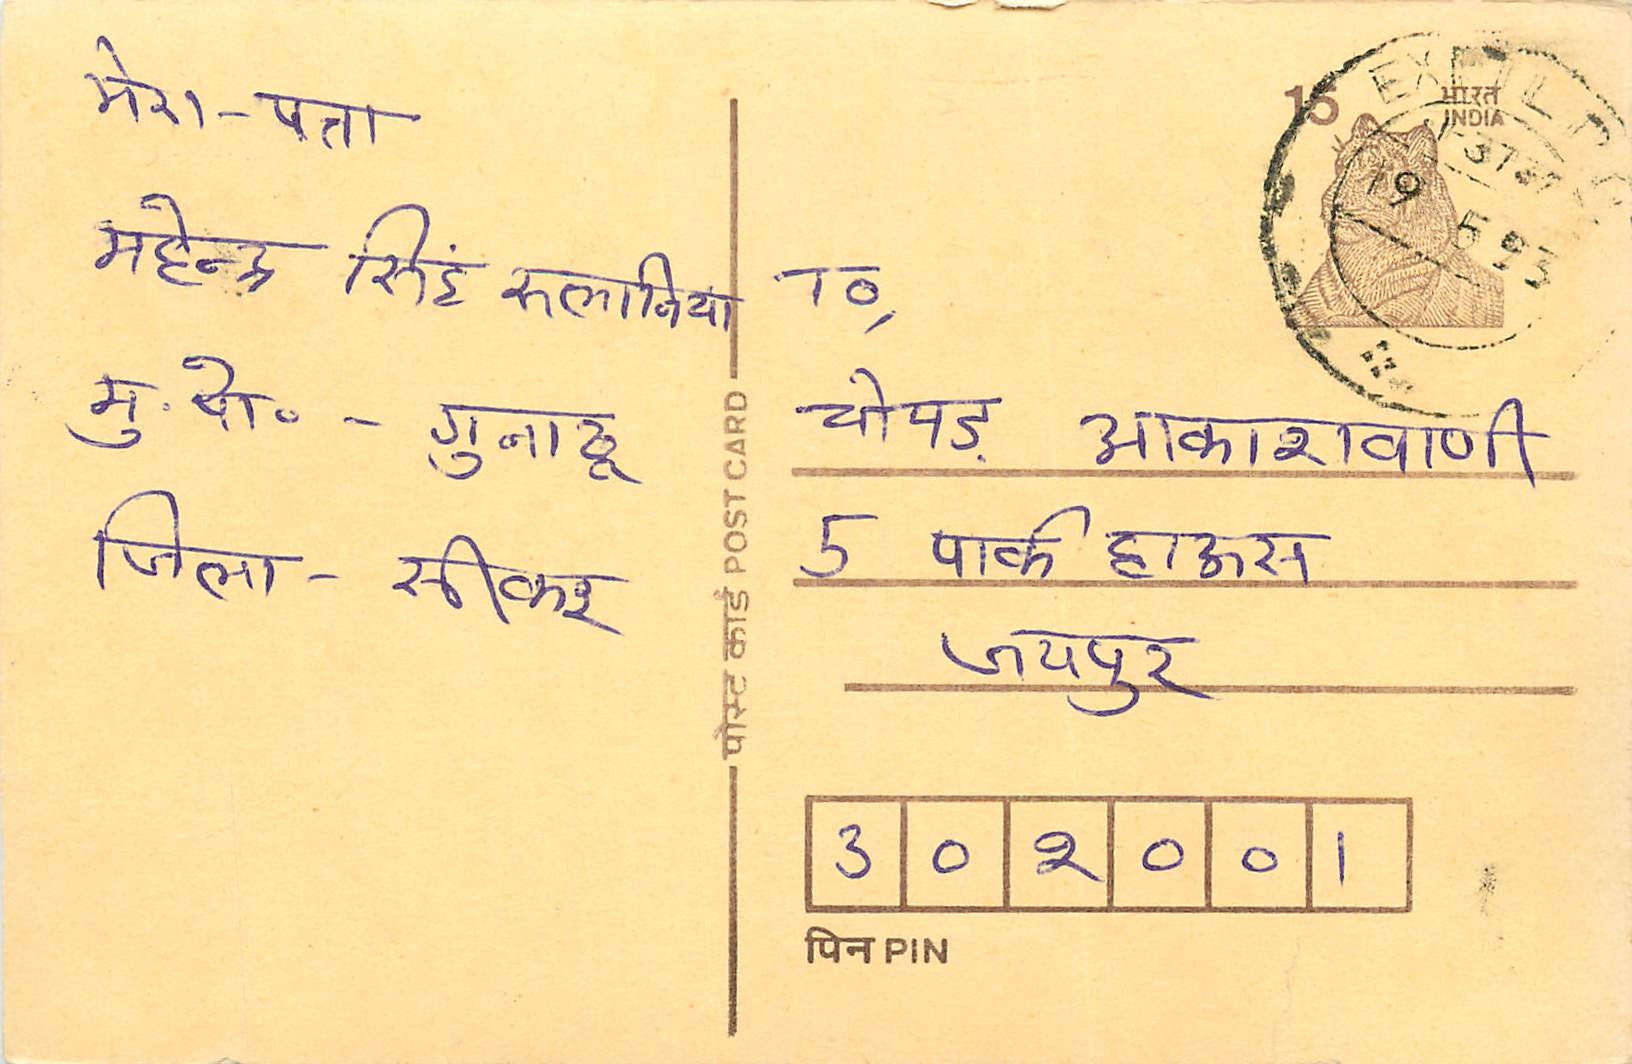 मेरा - पत्ता
महेन्द्र सिंह रुलानिया
मु. पो. - गुनाठू
जिला - सीकर
पोस्ट कार्ड POST CARD
15
भारत
INDIA
19
5 93
To,
चोपड़ आकाशवाणी
5 पार्क हाऊस
जयपुर
3 0 2 0 0 1
पिन PIN